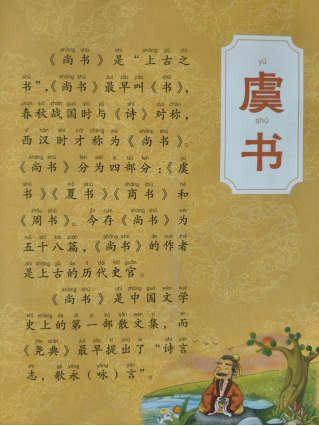 虞书
yú
shū
《尚书》是“上古之
书”,《尚书》最早叫《书》,
春秋战国时与《诗》对称,
西汉时才称为《尚书》。
《尚书》分为四部分:《虞
书》《夏书》《商书》和
《周书》。今存《尚书》为
五十八篇,《尚书》的作者
是上古的历代史官。
《尚书》是中国文学
史上的第一部散文集,而
《尧典》最早提出了“诗言
志,歌永(咏)言”。